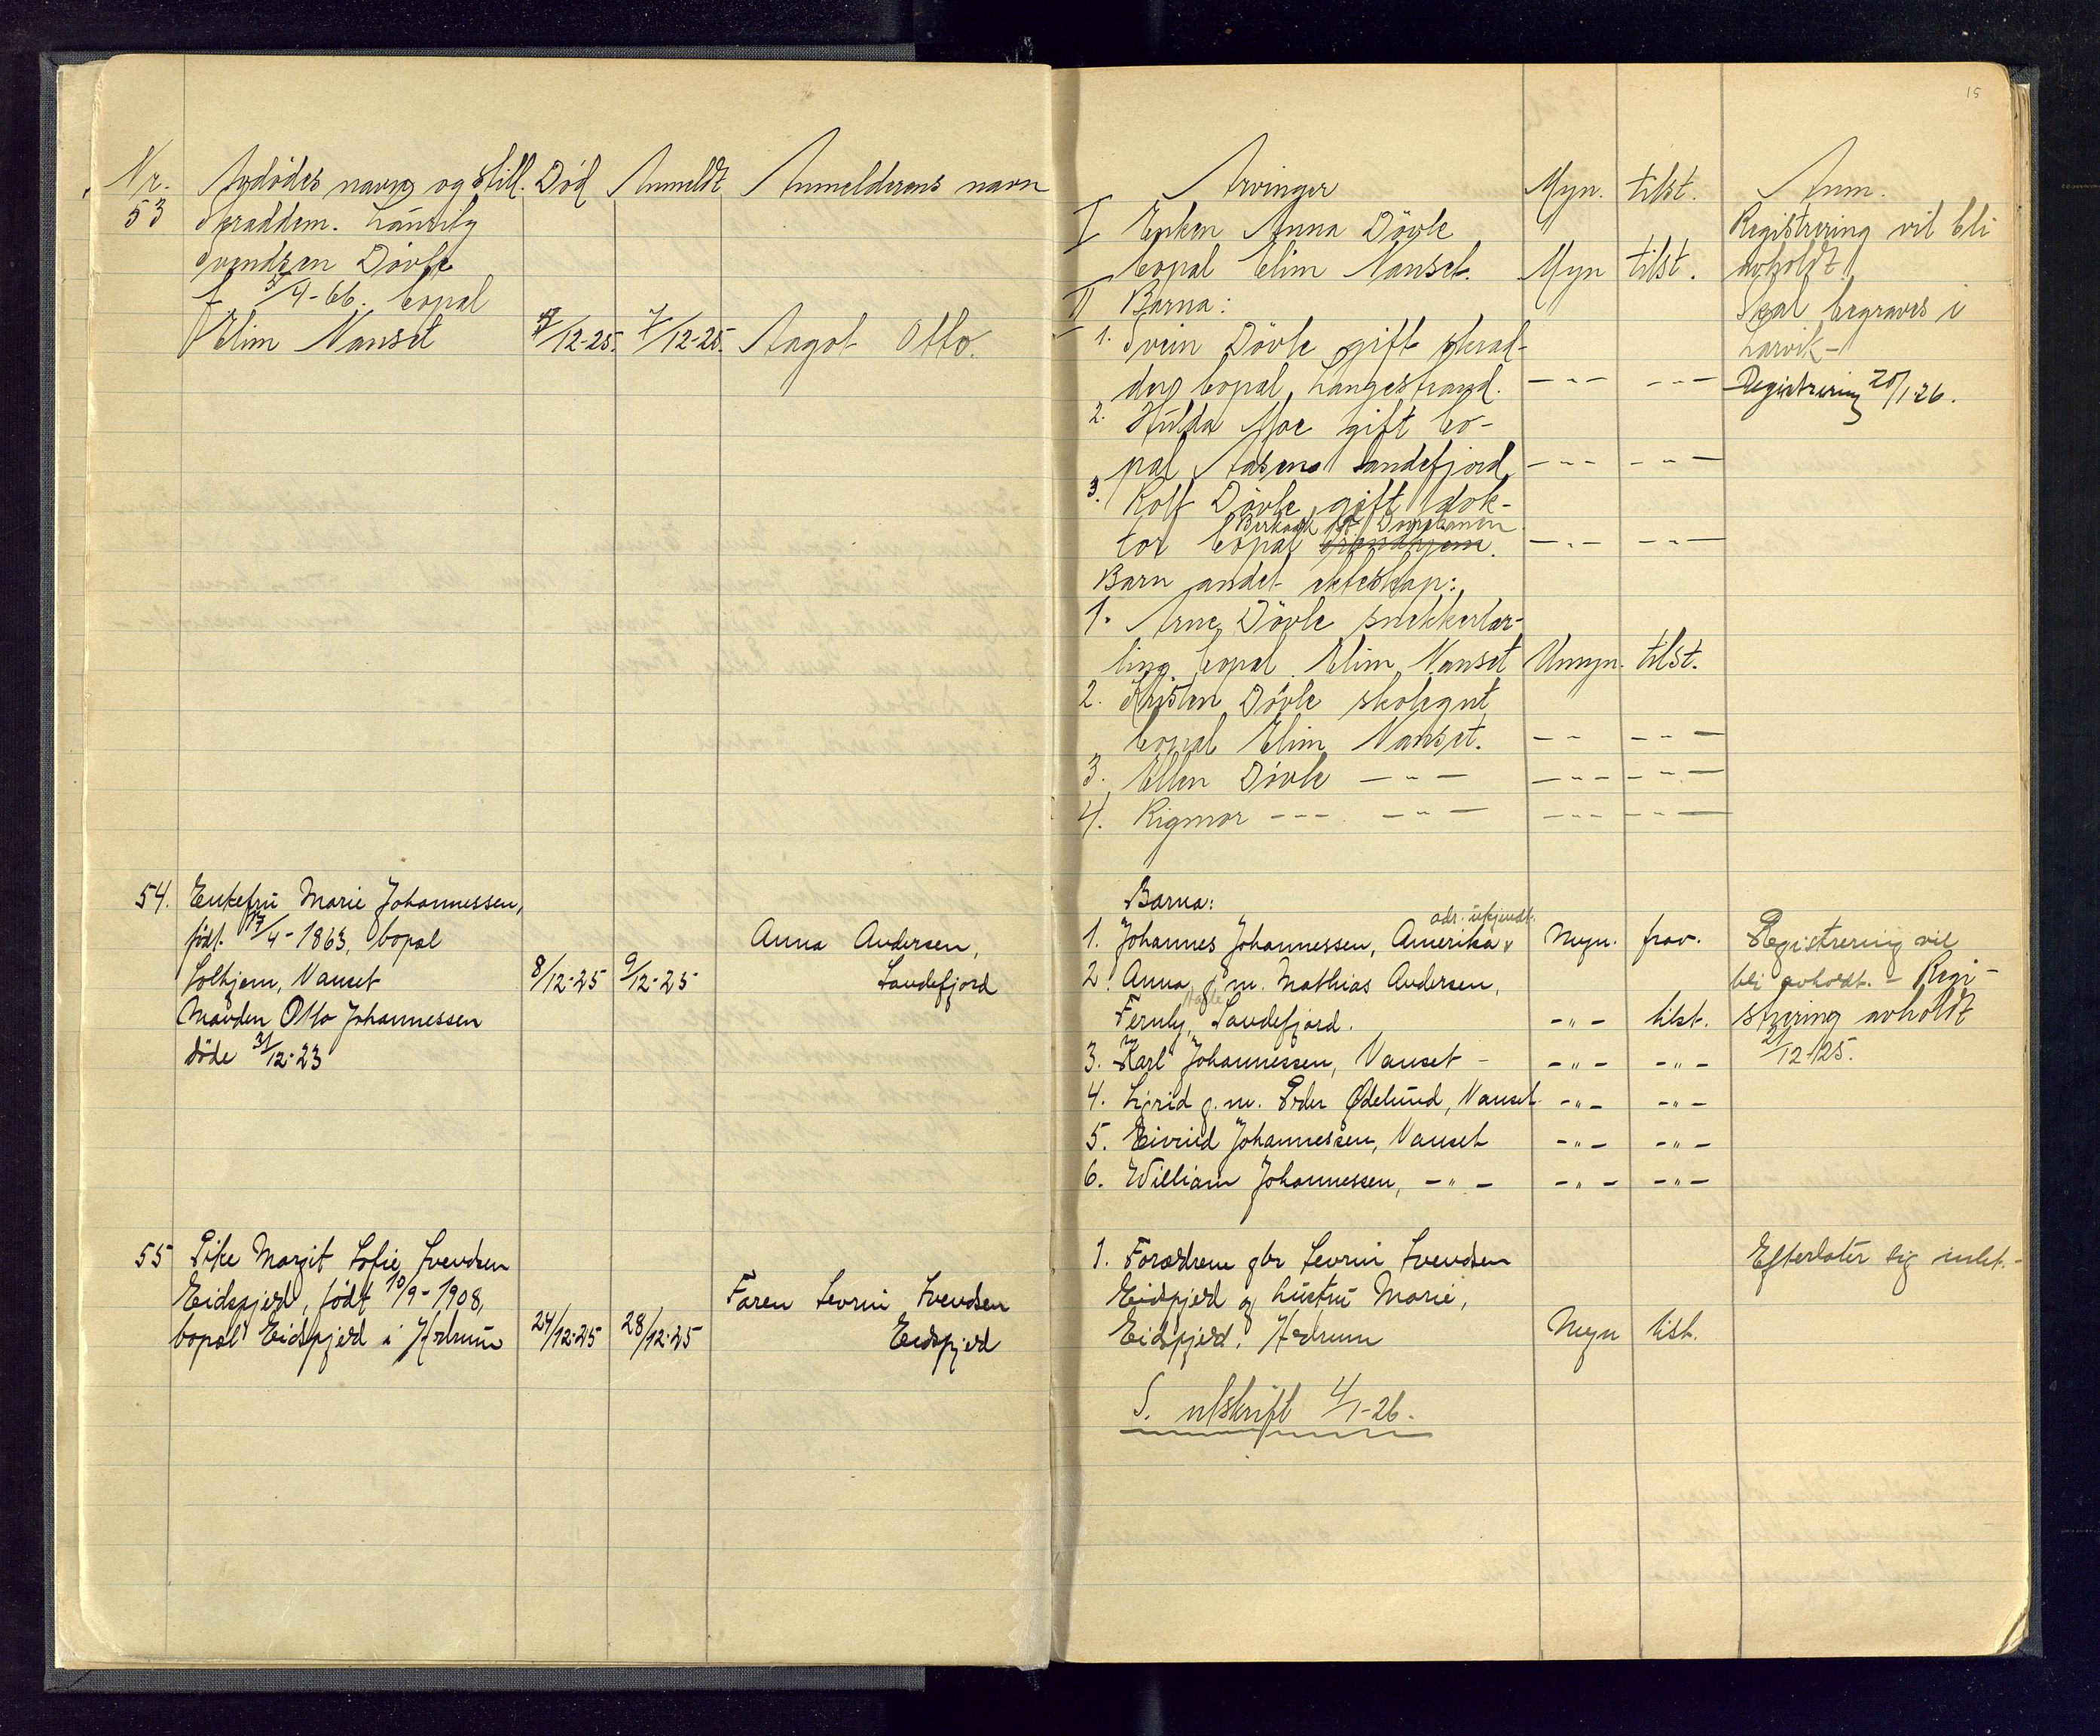 15
Nr. Avdödes navn og still. Död Anmeldt Anmelderens navn
53 Skreddem. Lauritz
Svendsen Dövle
f. 5/4-66. bopal
Elim Nanset 7/12-25. 7/12-25. Aagot Otto.
54. Enkefru Marie Johannessen,
født. 17/4-1863, bopal
Solhjem, Nanset 8/12-25 9/12-25 Anna Andersen,
Sandefjord
Manden Otto Johannessen
døde 31/12-23
55 Pike Margit Sofie Svendsen
Eidsfjerd, født 10/9-1908,
bopal Eidsfjerd i Hedrum 24/12-25 28/12-25 Faren Severin Svendsen
Eidsfjerd
Arvinger Myn. tilst. Anm.
I Enken Anna Dövle Registrering vil bli
bopal Elim Nanset. Myn tilst. avholdt
II Barna: Skal begraves i
1. Svein Dövle gift skred- Larvik-
der bopal Langestrand. - " - - " - Registrering 20/1-26.
2. Hulda Moe gift bo-
pal Aasen Sandefjord - " - - " -
3. Rolf Dövle gift dok-
tor bopal - " - - " -
Barn andet ekteskap:
1. Arne Dövle snekkerlær-
ling bopal Elim Nanset Umyn. tilst.
2. Kristen Dövle skolegut
bopal Elim Nanset. - " - - " -
3. Ellen Dövle - " - - " - - " -
4. Rigmor - " - - " - - " - - " -
Barna:
adr. ukjendt.
1. Johannes Johannessen, Amerika Myn. frav. Registrering vil
2. Anna g. m. Mathias Andersen, bli avholdt. - Regi-
Fernly, Sandefjord. - " - tilst. strering avholdt
3. Karl Johannessen, Nanset - - " - - " - 21/12-25.
4. Sigrid g. m. Peder Ødelund, Nanset - " - - " -
5. Eivind Johannessen, Nanset - " - - " -
6. William Johannessen, - " - - " - - " -
1. Forældrene gbr Severin Svendsen Efterlater sig intet.-
Eidsfjerd og hustru Marie,
Eidsfjerd i Hedrum Myn tilst.
S. utskrift 4/1-26.